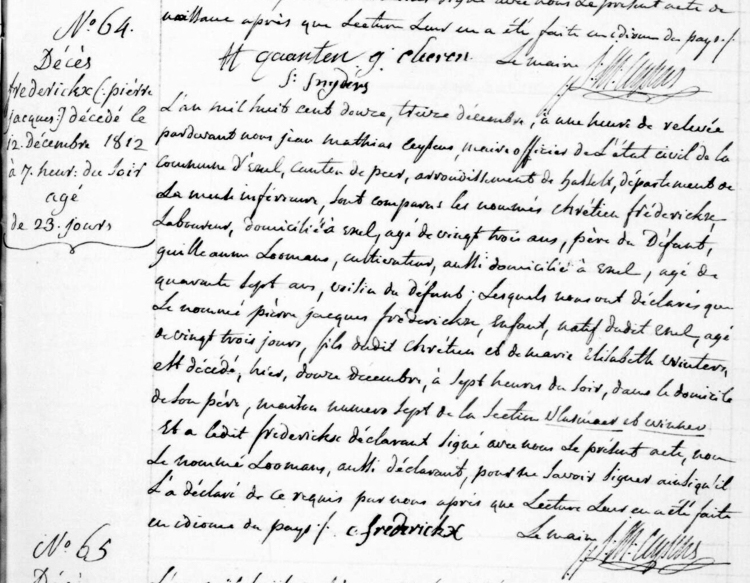 naissance après que Lecture Leur en a été faite en idiome du pays ./.
H gaanten g. clieren Le maire
St. Snyders
No. 64.
Décès
frederickx (: piérre
jacques :) décédé le
12. décembre 1812
à 7. heur: du soir
agé
de 23. jours
L'an mil huit cent douze, treize décembre, à une heure de relevée
pardevant nous jean mathias ceylens, maire officier de L'état civil de la
commune d'Exel, canton de peer, arrondissement de hasselt, département de
La meuse inférieure, sont comparus les nommés chrétien fréderickx
Laboureur, domicilié à exel, agé de vingt trois ans, père du Défunt,
guilleaume Loomans, cultivateur, aussi domicilié à Exel, agé de
quarante sept ans, voisin du défunt; Lesquels nous ont déclarés que
Le nommé piérre jacques fréderickx, Enfant, natif dudit Exel, agé
de vingt trois jours, fils dudit chrétien et de marie Elisabeth winters,
est décédé, hier, douze décembre, à sept heures du soir, dans le domicile
de son père, maison numero sept de la section
Et a ledit fréderickx déclarant signé avec nous Le présent acte, non
Le nommé Loomans, aussi déclarant, pour ne savoir signer ainsi qu'il
L'a déclaré de ce requis par nous après que Lecture Leur en a été faite
en idiome du pays ./. c frederickx Le maire
No. 65
Décès